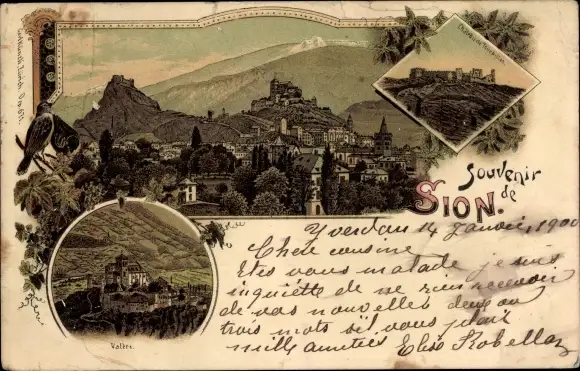 Souvenir
de
SION.
Yverdon 14 Janvier, 1900
Chère cousine
Êtes vous malade je suis
inquiette de ne rien recevoir
de vos nouvelles deux ou
trois mots s'il vous plait
mille amitiés Elise Robellaz
Valère.